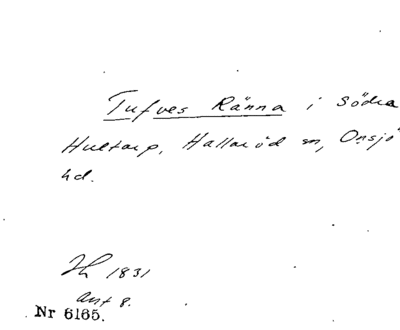 Tufves Ränna i Södra
Hultarp, Hallaröd sn, Onsjö
hd.
Lh 1831
Ant 8.
Nr 6165.